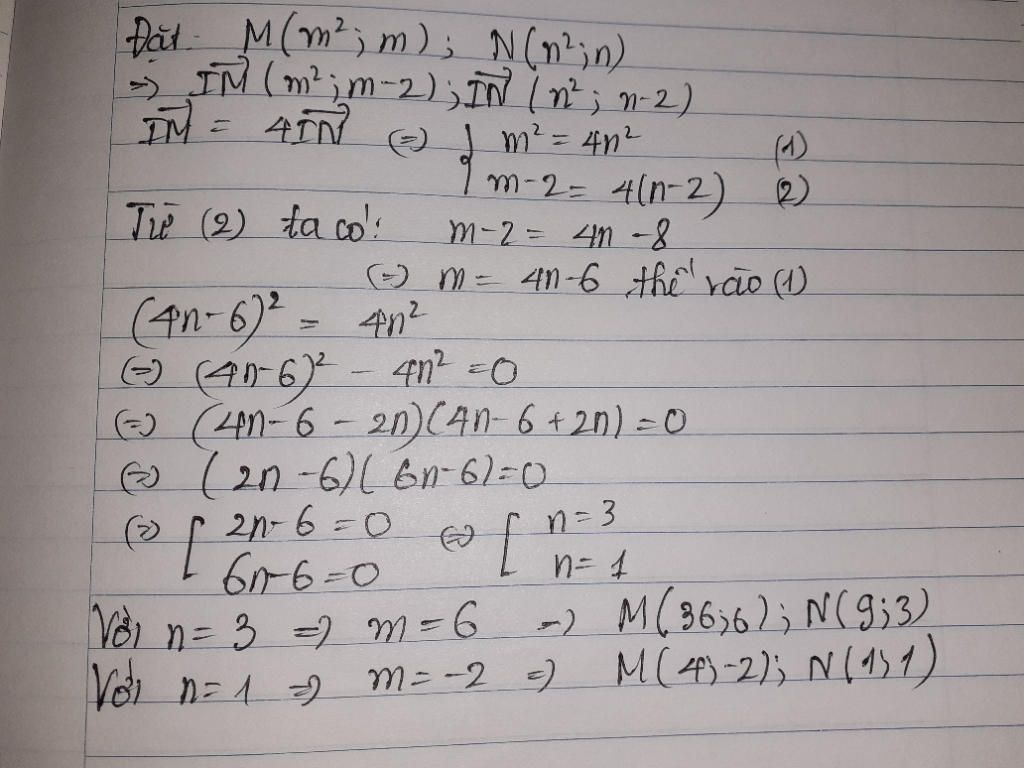 Đặt: M(m²; m); N(n²; n)
=> IM→ (m²; m-2); IN→ (n²; n-2)
IM→ = 4IN→ <=> { m² = 4n² (1)
m-2 = 4(n-2) (2)
Từ (2) ta có: m-2 = 4n-8
<=> m = 4n-6 thế vào (1)
(4n-6)² = 4n²
<=> (4n-6)² - 4n² = 0
<=> (4n-6-2n)(4n-6+2n) = 0
<=> (2n-6)(6n-6)=0
<=> [ 2n-6=0 <=> [ n=3
6n-6=0 n=1
Với n=3 => m=6 => M(36;6); N(9;3)
Với n=1 => m=-2 => M(4;-2); N(1;1)